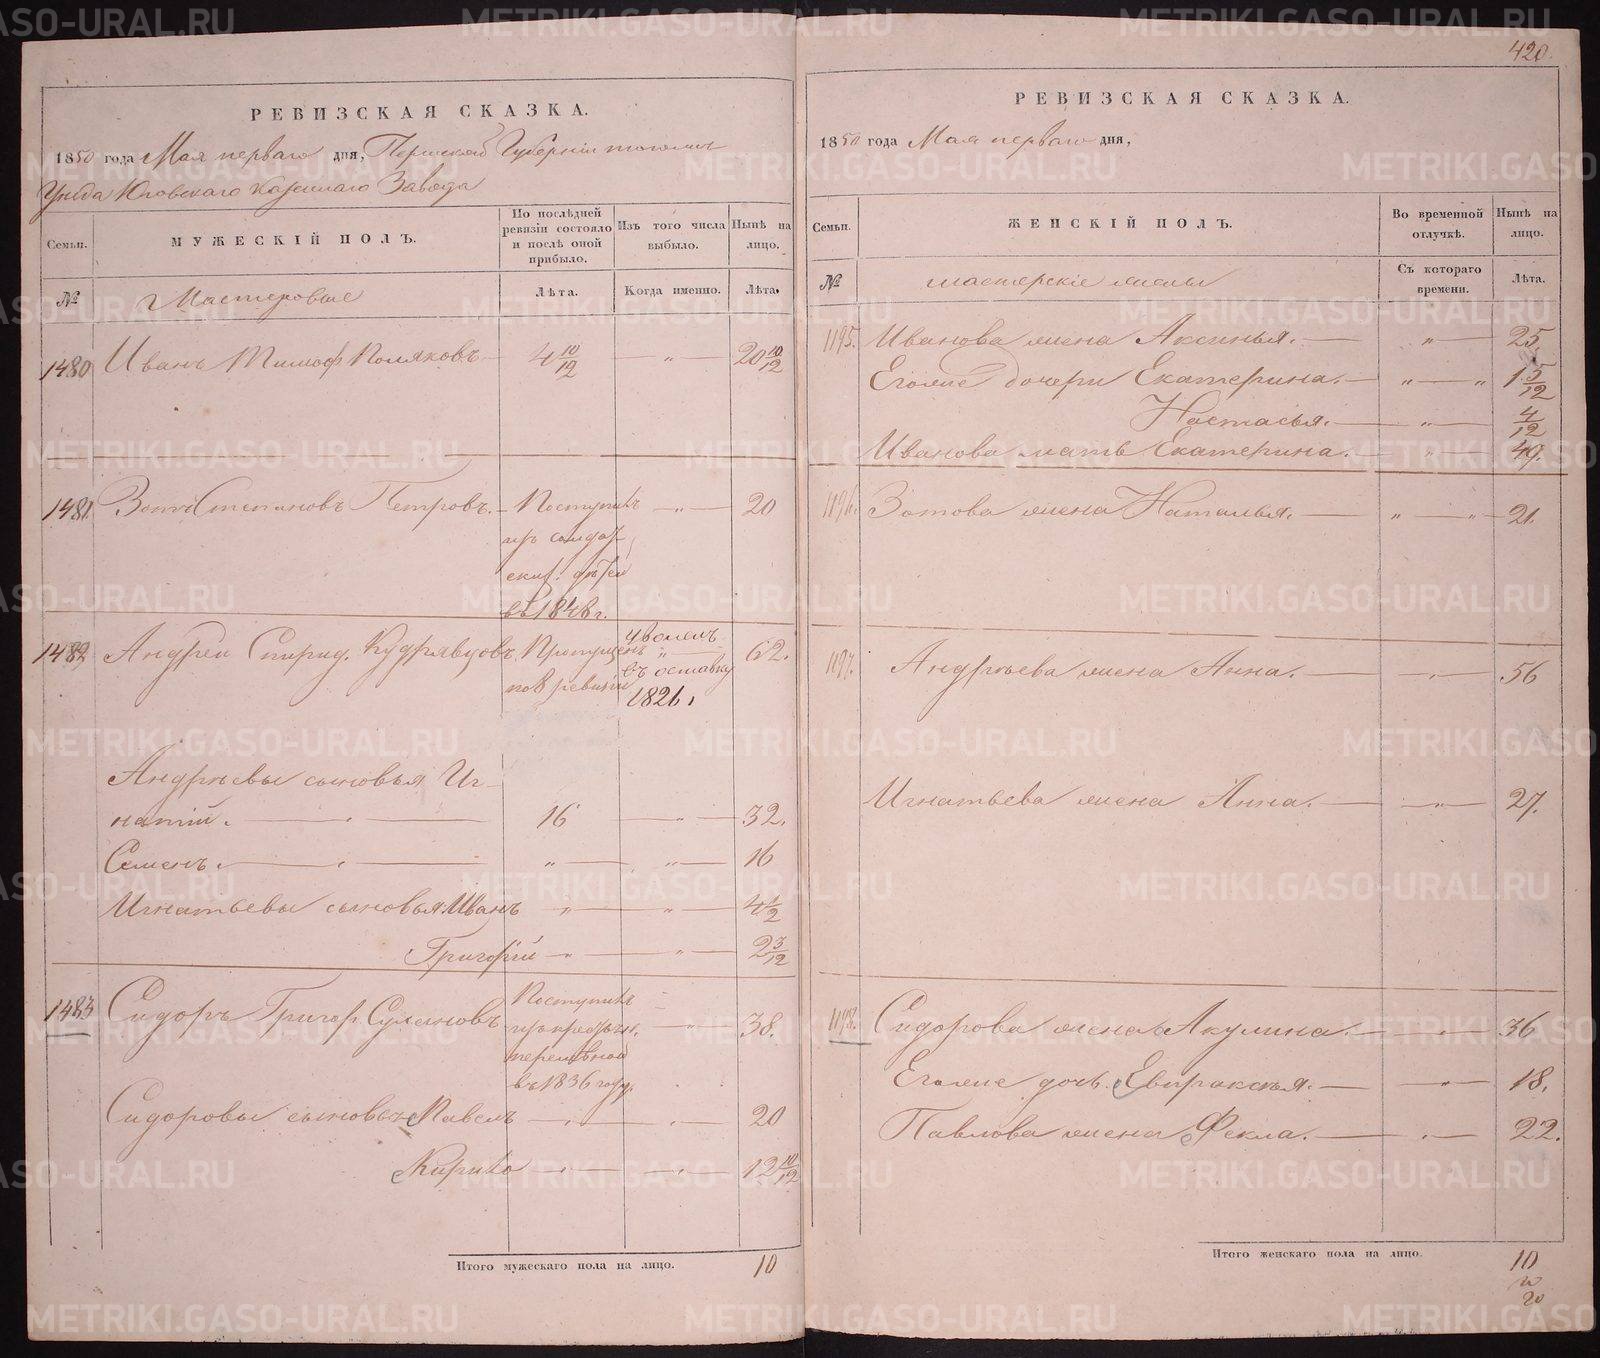 420.
РЕВИЗСКАЯ СКАЗКА.
1850 года Мая перваго дня, Пермской Губернии тогожъ
Уезда Юговскаго Казеннаго Завода
Семьи.
МУЖЕСКІЙ ПОЛЪ.
По послѣдней ревизіи состояло и послѣ оной прибыло.
Изъ того числа выбыло.
Нынѣ на лицо.
№
Мастеровые
Лѣта.
Когда именно.
Лѣта.
1480 Иванъ Тимоф Поляковъ 4 10/12 — „ — 20 10/12
1481. Зотъ Степановъ Петровъ. — Поступилъ — „ — 20
изъ солдат
ских. дѣтей
въ 1848 г.
1482 Андрей Спирид. Кудрявцовъ. Пропущенъ уволенъ 62.
по 8 ревизіи въ оставку
1826.
Андрѣевы сыновья Иг-
натій. 16 — „ — 32.
Семенъ. „ — „ — 16
Игнатьевы сыновья. Иванъ „ — „ — 4 1/2
Григорій — „ — „ — 2 3/12
1483 Сидоръ Григор. Поступилъ
— „ — 38.
въ 1836 году.
Сидоровы сыновья Павелъ — „ — „ — 20
Кирило — „ — „ — 12 10/12
Итого мужескаго пола на лицо. 10
РЕВИЗСКАЯ СКАЗКА.
1850 года Мая перваго дня,
Семьи.
ЖЕНСКІЙ ПОЛЪ.
Во временной отлучкѣ.
Нынѣ на лицо.
№
мастерскіе жены
Съ котораго времени.
Лѣта.
1195. Иванова жена Аксинья. — „ — 25
Еголые дочери Екатерина. — „ — „ 1 5/12
Настасья. — „ — 4/12
Иванова мать Екатерина. — „ — 49.
1196. Зотова жена Наталья. — „ — „ — 21.
1197. Андрѣева жена Анна. — „ — 56
Игнатьева жена Анна. — „ — 27.
1198. Сидорова жена Акулина. — „ — 36
Еголые дочь. Евпраксья. — „ — 18.
Павлова жена Фекла. — „ — 22.
Итого женскаго пола на лицо. 10
20
METRIKI.GASO-URAL.RU